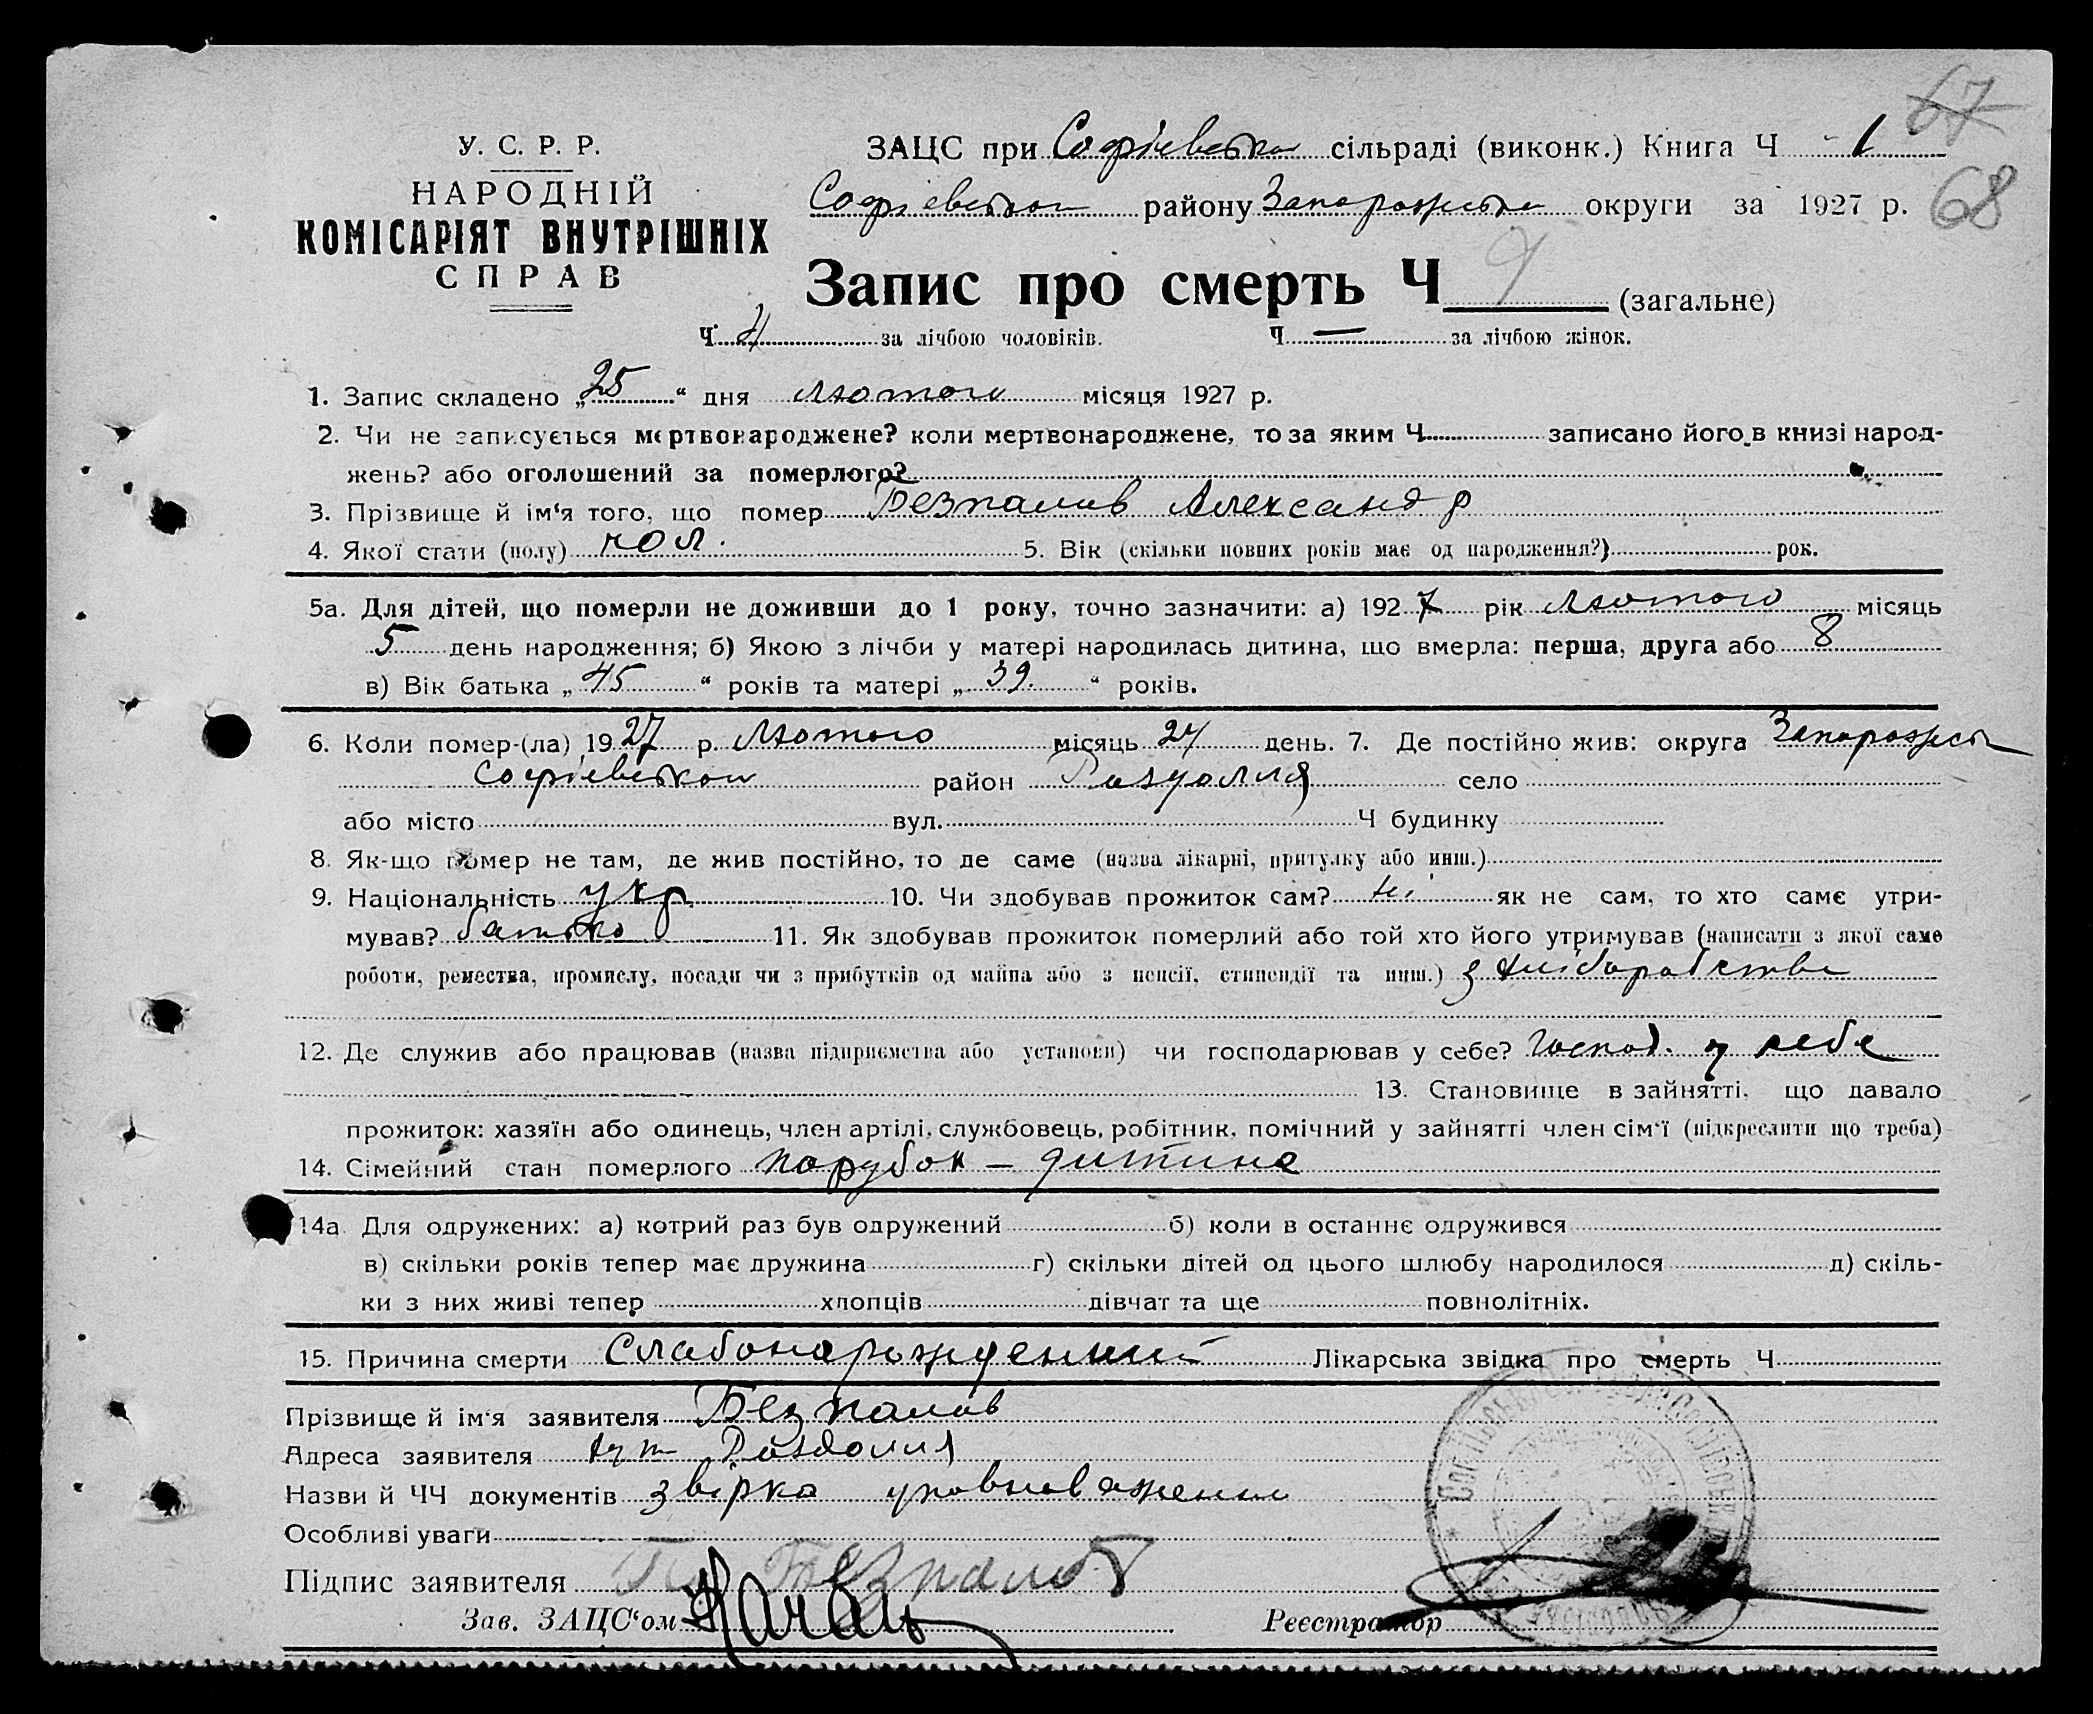 67
68
У. С. Р. Р.
НАРОДНІЙ
КОМІСАРІЯТ ВНУТРІШНІХ
СПРАВ
ЗАЦС при Софієвської сільраді (виконк.) Книга Ч 1
Софієвської району Запорожської округи за 1927 р.
Запис про смерть Ч 9 (загальне)
Ч. 4 за лічбою чоловіків. Ч — за лічбою жінок.
1. Запис складено „25“ дня лютого місяця 1927 р.
2. Чи не записується мертвонароджене? коли мертвонароджене, то за яким Ч. записано його в книзі народ-
жень? або оголошений за померлого?
3. Прізвище й ім‘я того, що помер Безпалив Александр
4. Якої стати (полу) чол. 5. Вік (скільки повних років має од народження?) рок.
5а. Для дітей, що померли не доживши до 1 року, точно зазначити: а) 1927 рік лютого місяць
5 день народження; б) Якою з лічби у матері народилась дитина, що вмерла: перша, друга або 8
в) Вік батька „45“ років та матері „39.“ років.
6. Коли помер-(ла) 1927 р. Лютого місяць 24 день. 7. Де постійно жив: округа Запорожськ
Софієвской район Раздолля село
або місто вул. Ч будинку
8. Як-що помер не там, де жив постійно, то де саме (назва лікарні, притулку або инш.)
9. Національність укр. 10. Чи здобував прожиток сам? ні як не сам, то хто саме утри-
мував? батько 11. Як здобував прожиток померлий або той хто його утримував (написати з якої саме
роботи, ремества, промислу, посади чи з прибутків од майна або з пенсії, стипендії та инш.) з хліборобства
12. Де служив або працював (назва підприємства або установи) чи господарював у себе? Господ. у себе
13. Становище в зайнятті, що давало
прожиток: хазяїн або одинець, член артілі, службовець, робітник, помічний у зайнятті член сім‘ї (підкреслити що треба)
14. Сімейний стан померлого парубок — дитина
14а Для одружених: а) котрий раз був одружений б) коли в останнє одружився
в) скільки років тепер має дружина г) скільки дітей од цього шлюбу народилося д) скіль-
ки з них живі тепер хлопців дівчат та ще повнолітніх.
15. Причина смерти Слабонарожденний Лікарська звідка про смерть Ч
Прізвище й ім‘я заявителя Безпалов
Адреса заявителя хут Раздолля
Назви й ЧЧ документів звірка уповноваженого
Особливі уваги
Підпис заявителя Безпалов
Зав. ЗАЦС‘ом Реєстратор